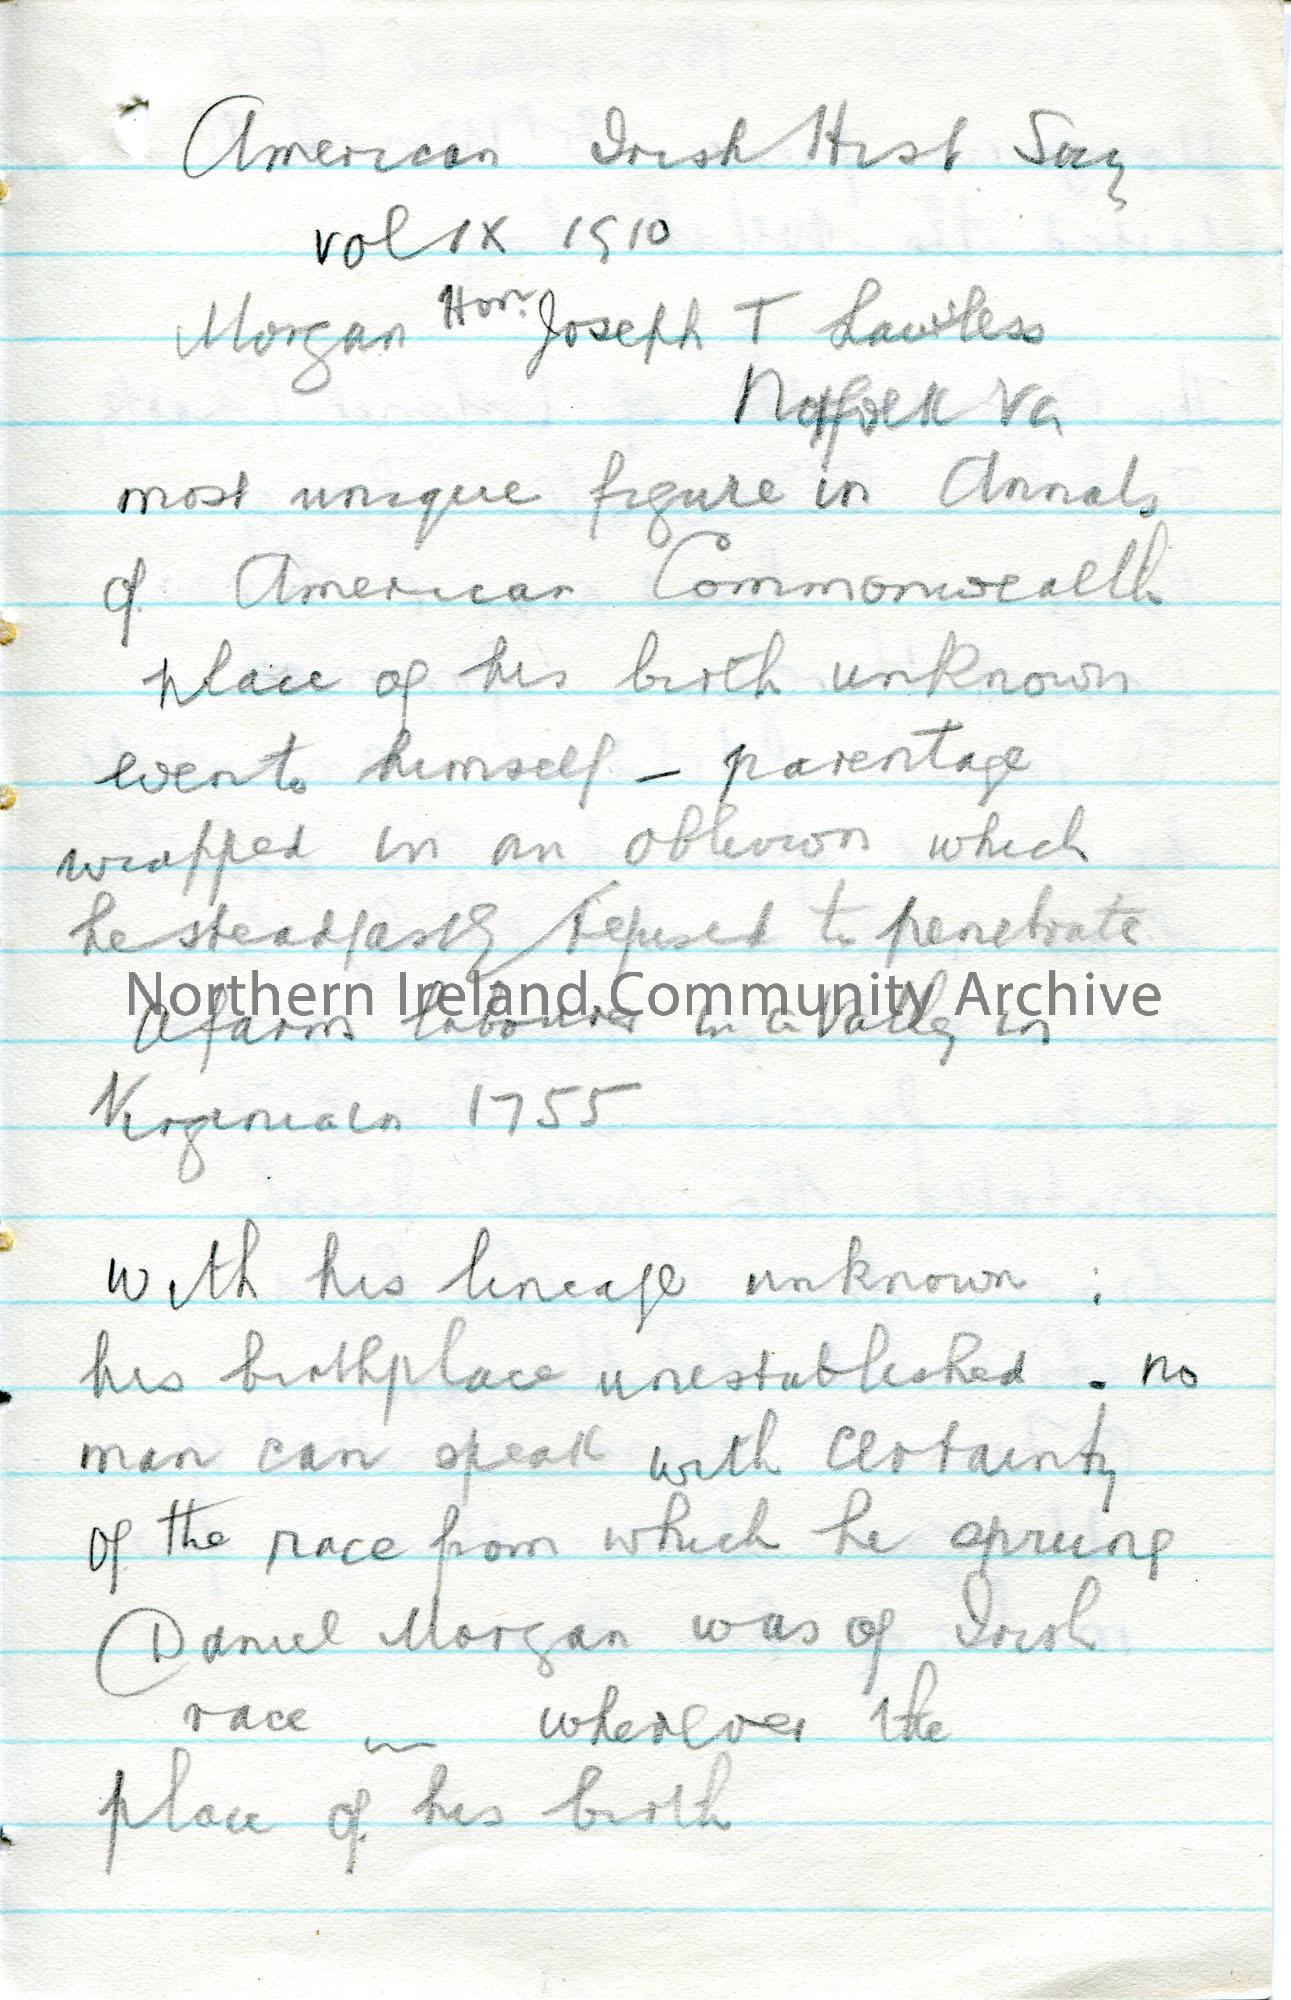 American Irish Hist Socy
vol IX 1910
Morgan Hon. Joseph T Lawless
Norfolk Va
most unique figure in Annals
of American Commonwealth
place of his birth unknown
even to himself – parentage
wrapped in an oblivion which
he steadfastly refused to penetrate
Northern Ireland Community Archive
a farm labourer in a valley in
Virginia in 1755
with his lineage unknown ;
his birthplace unestablished . no
man can speak with certainty
of the race from which he sprung
Daniel Morgan was of Irish
race – wherever the
place of his birth